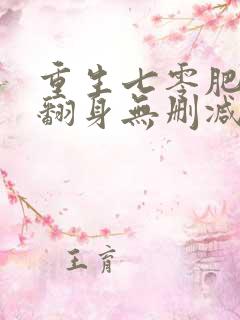 重生七零肥
翻身無刪減
王育